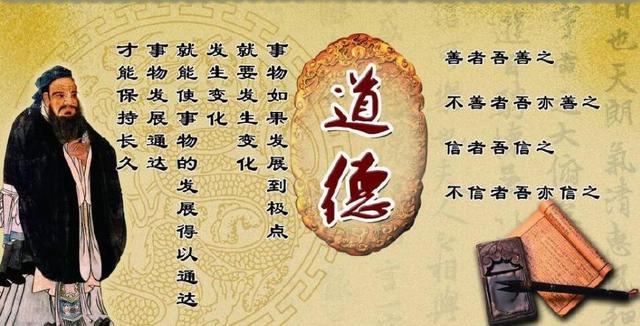 善者吾善之
不善者吾亦善之
信者吾信之
不信者吾亦信之
道德
事物如果发展到极点
就要发生变化
发生变化
就能使事物的发展得以通达
事物发展通达
才能保持长久
也天朗氣清